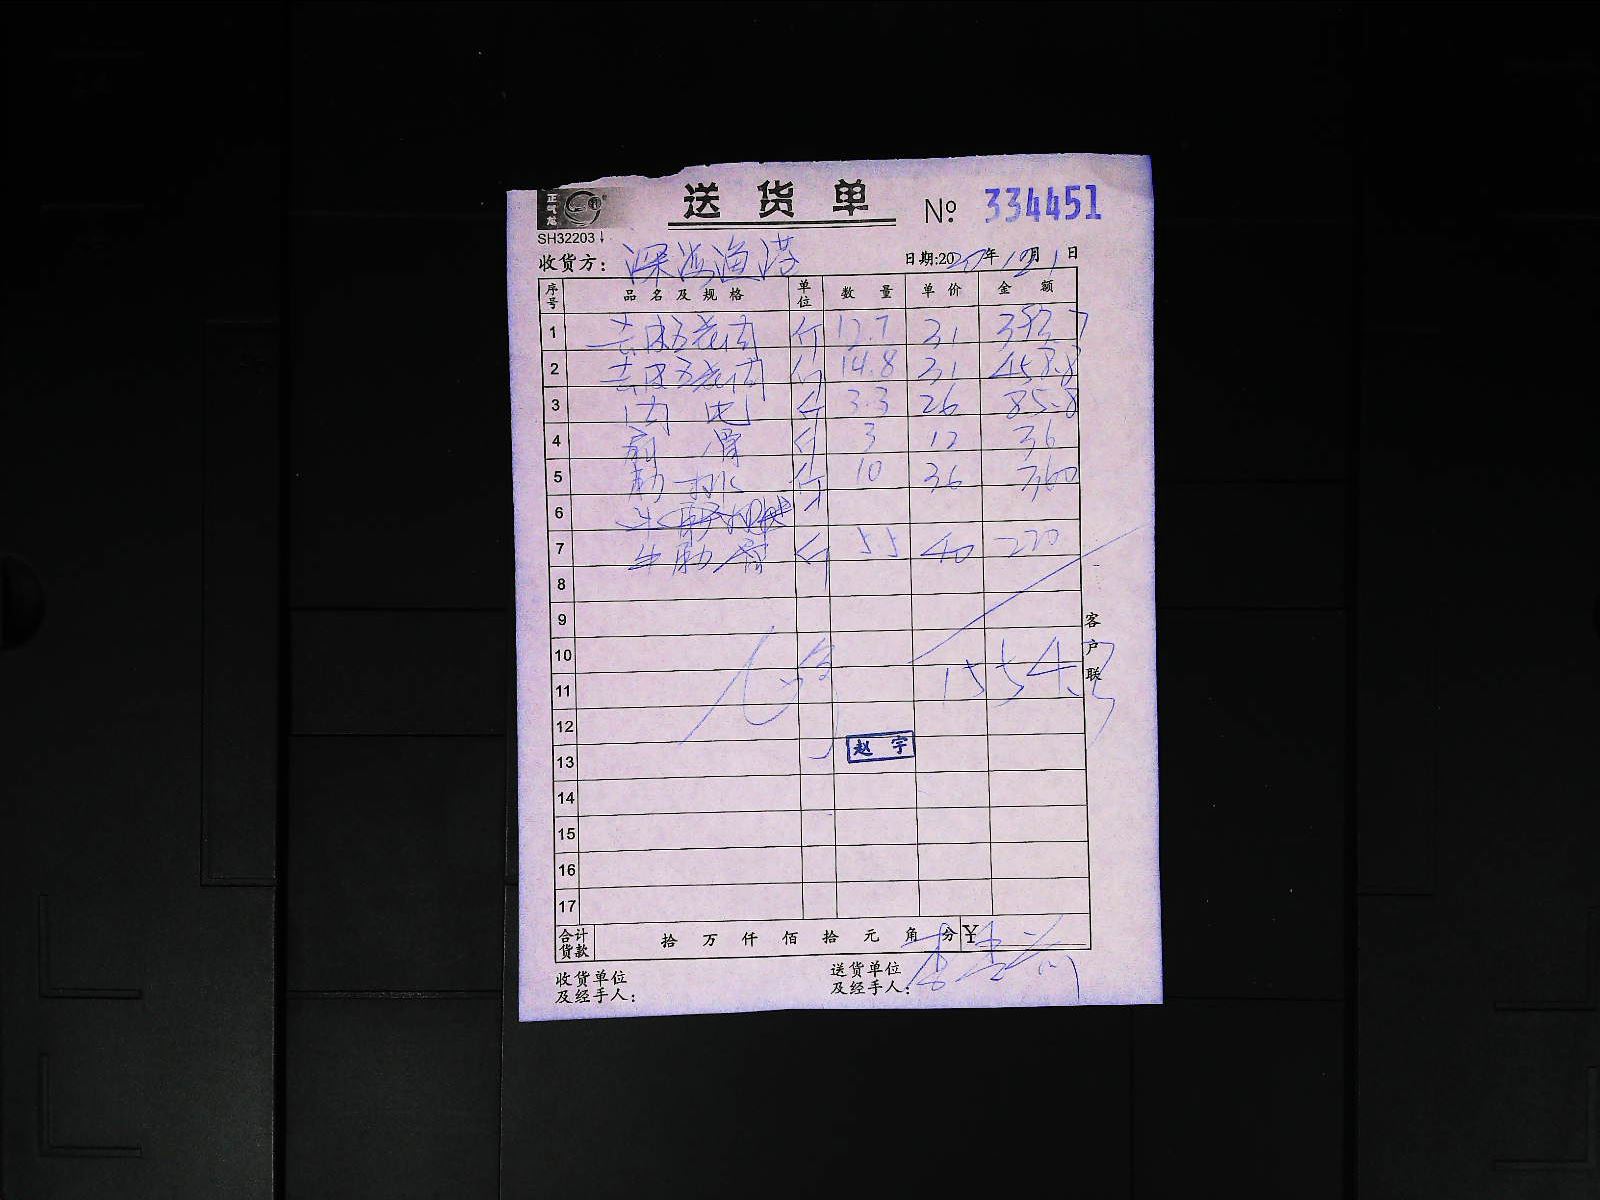 正气龙
送货单 № 334451
SH32203
收货方: 深海渔港 日期:2020年12月1日
序号 品名及规格 单位 数量 单价 金额
1 去皮五花肉 斤 12.7 31 393.7
2 去皮五花肉 斤 14.8 31 458.8
3 肉 斤 3.3 26 85.8
4 扇骨 斤 3 12 36
5 肋排 斤 10 36 360
6
7 牛肋骨 斤 5.5 40 220
8
9
10
11 1554.3
12
13 赵宇
14
15
16
17
合计货款 拾万仟佰拾元角分 ¥
收货单位及经手人:
送货单位及经手人:
客户联